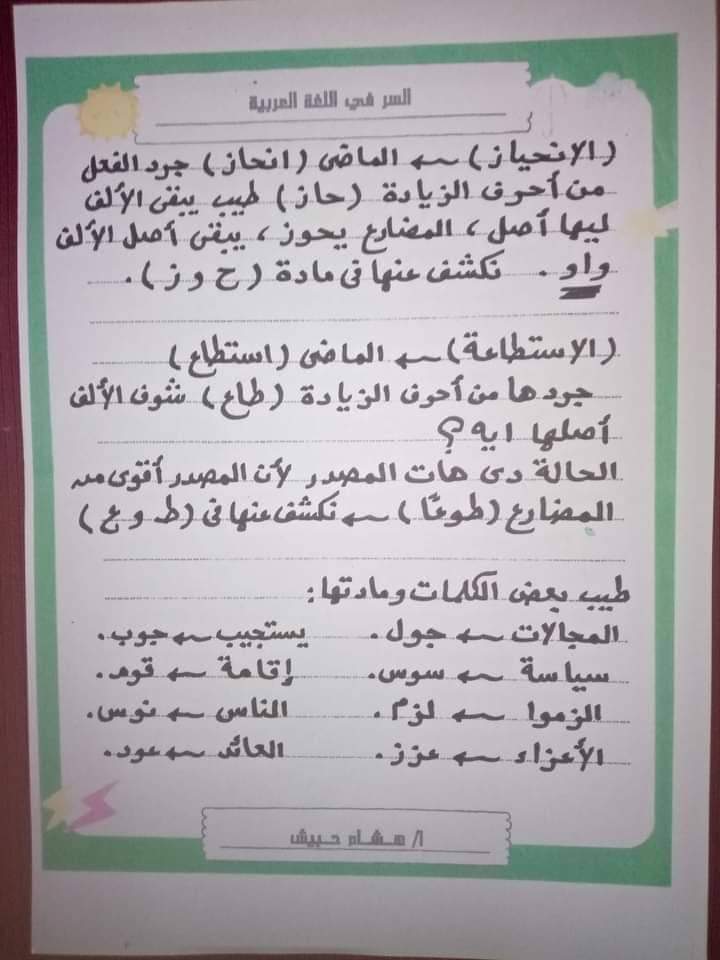 السر في اللغة العربية
(الانحياز) ← الماضى (انحاز) جرد الفعل
من أحرف الزيادة (حاز) طيب يبقى الألف
ليها أصل، المضارع يحوز، يبقى أصل الألف
واو. نكشف عنها فى مادة (ح و ز).
(الاستطاعة) ← الماضى (استطاع)
جردها من أحرف الزيادة (طاع) شوف الألف
أصلها ايه؟
الحالة دى هات المصدر لأن المصدر أقوى من
المضارع (طوعًا) ← نكشف عنها فى (ط و ع)
طيب بعض الكلمات ومادتها:
المجالات ← جول. يستجيب ← جوب.
سياسة ← سوس. إقامة ← قوم.
الزموا ← لزم. الناس ← نوس.
الأعزاء ← عزز. العائد ← عود.
أ/ هشام حبيش